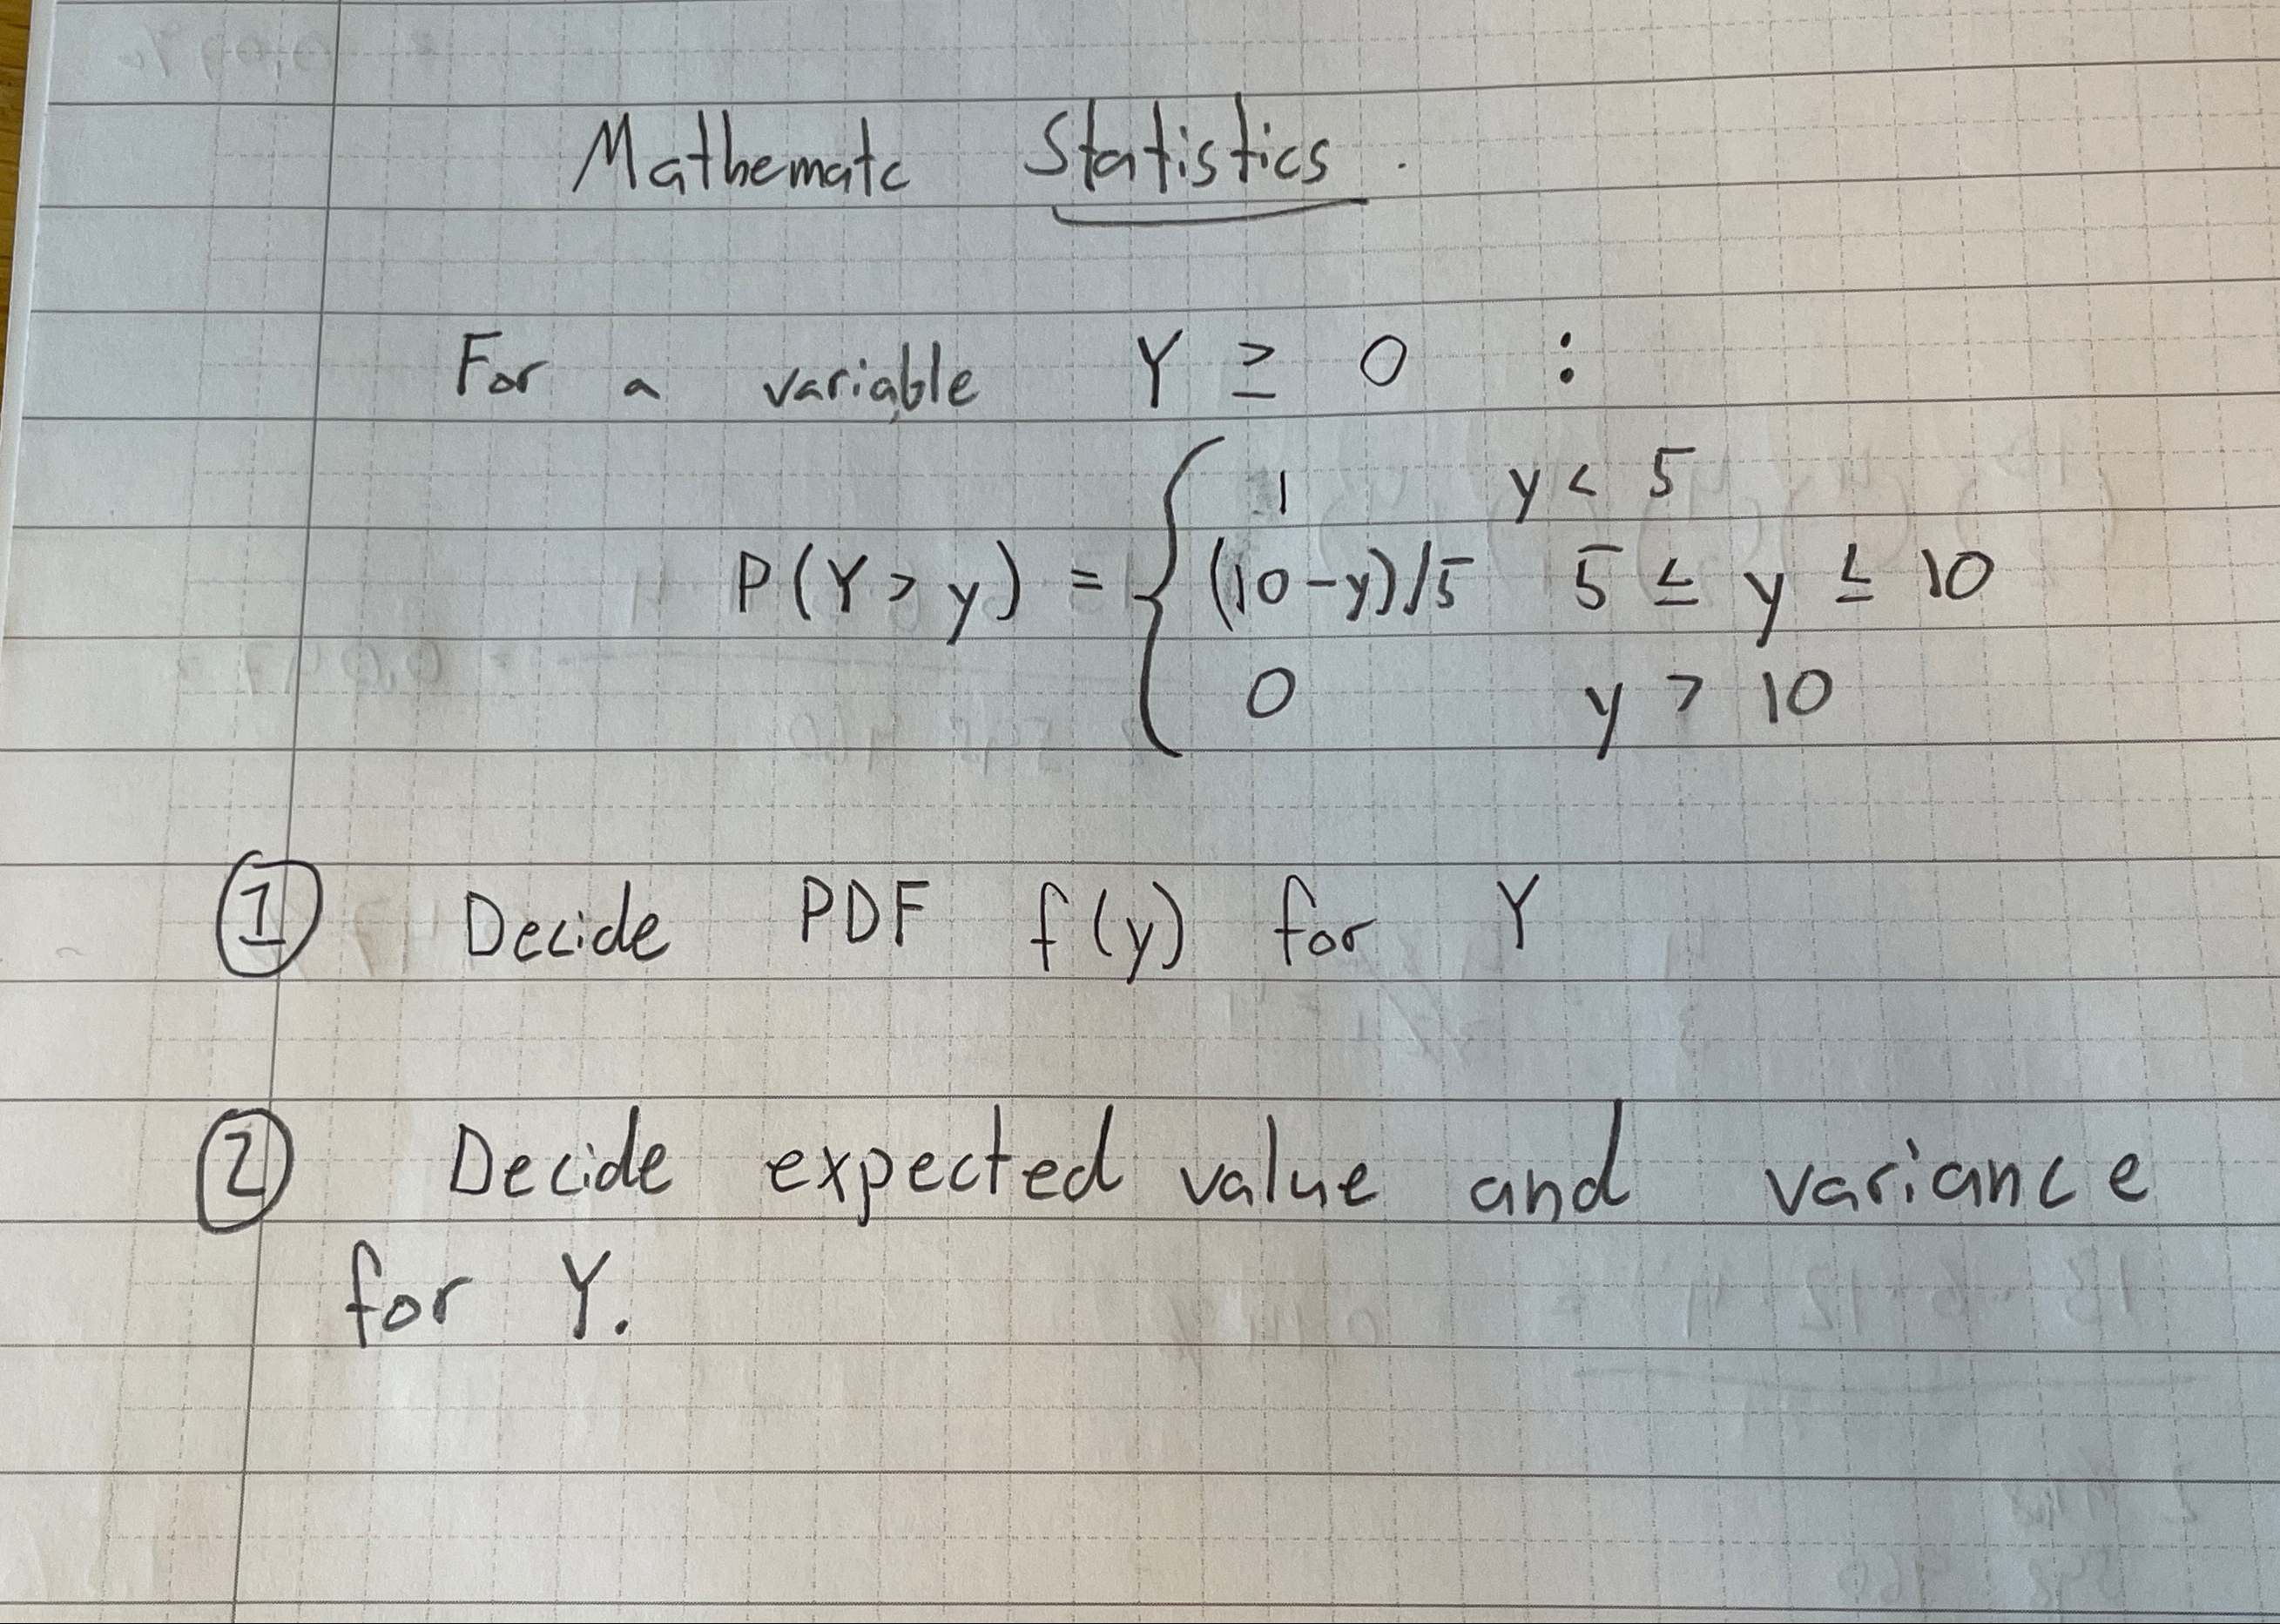 Mathematc Statistics.
For a variable Y ≥ 0 :
1 y < 5
P(Y > y) = { (10-y)/5 5 ≤ y ≤ 10
0 y > 10
① Decide PDF f(y) for Y
② Decide expected value and variance
for Y.